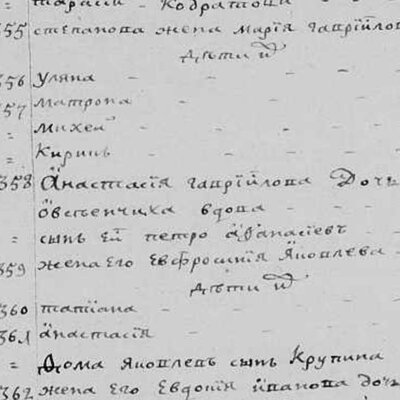 = тарасій - Кодратови -
355 степанова жена марія гавріїлов
дѣти иⷯ
356 Уляна - - - -
357 матрона - - - -
= михей - - - -
= Киринъ - - - -
358 анастасія гавріїлова Дочь
Овсѣенчиха вдова - - -
= сынъ еѧ петро афанасіевъ -
359 жена его евфросинія яковлева -
дѣти иⷯ
360 татіана - - - -
361 анастасія - - - -
= Ѳома яковлевъ сынъ Крупина
362 жена его Евдокія іванова дочь